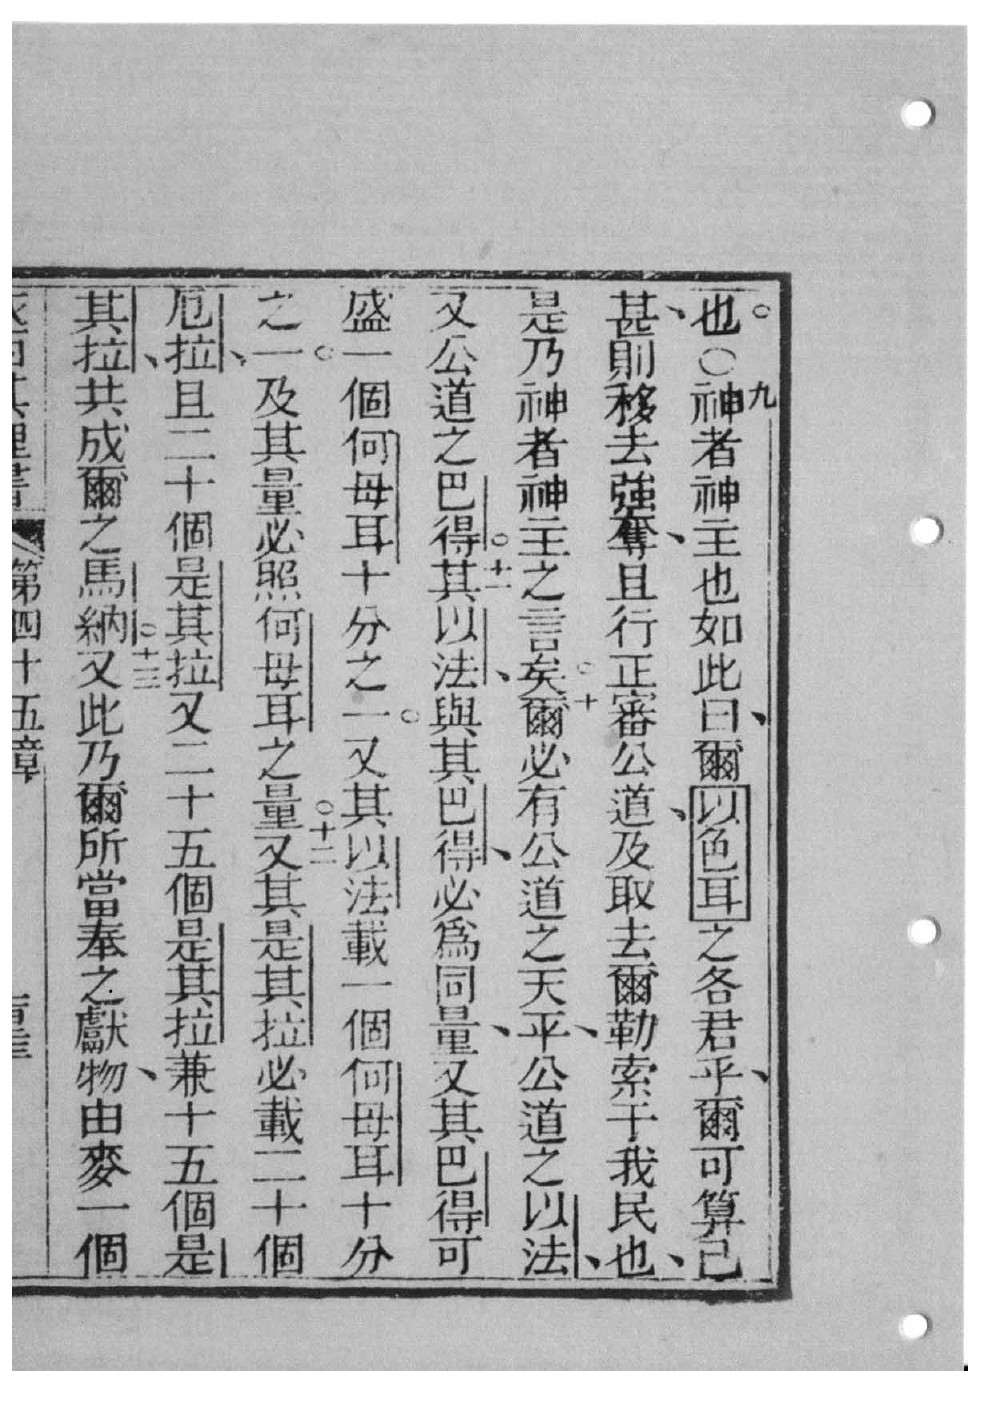 也○九神者神主也如此曰爾以色耳之各君乎爾可算己
甚則移去強奪且行正審公道及取去爾勒索于我民也
是乃神者神主之言矣十爾必有公道之天平公道之以法
又公道之巴得十一其以法與其巴得必為同量又其巴得可
盛一個何毋耳十分之一又其以法載一個何毋耳十分
之一及其量必照何毋耳之量十二又其是其拉必載二十個
厄拉且二十個是其拉又二十五個是其拉兼十五個是
其拉共成爾之馬納十三又此乃爾所當奉之獻物由麥一個
第四十五章